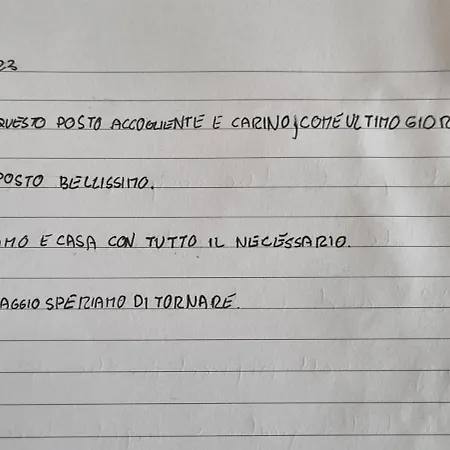 23
QUESTO POSTO ACCOGLIENTE E CARINO, COME ULTIMO GIOR
POSTO BELLISSIMO.
AMO E CASA CON TUTTO IL NECESSARIO.
AGGIO SPERIAMO DI TORNARE.